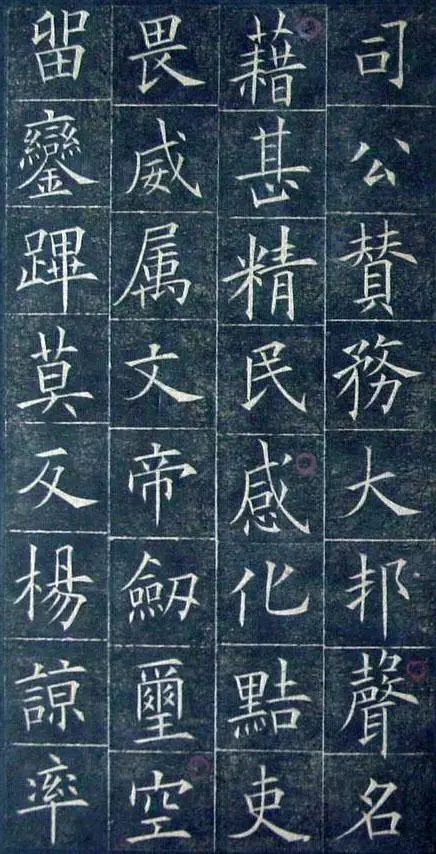 司公赞務大邦聲名
藉甚精民感化黠吏
畏威属文帝劔璽空
留鑾蹕莫反楊諒率